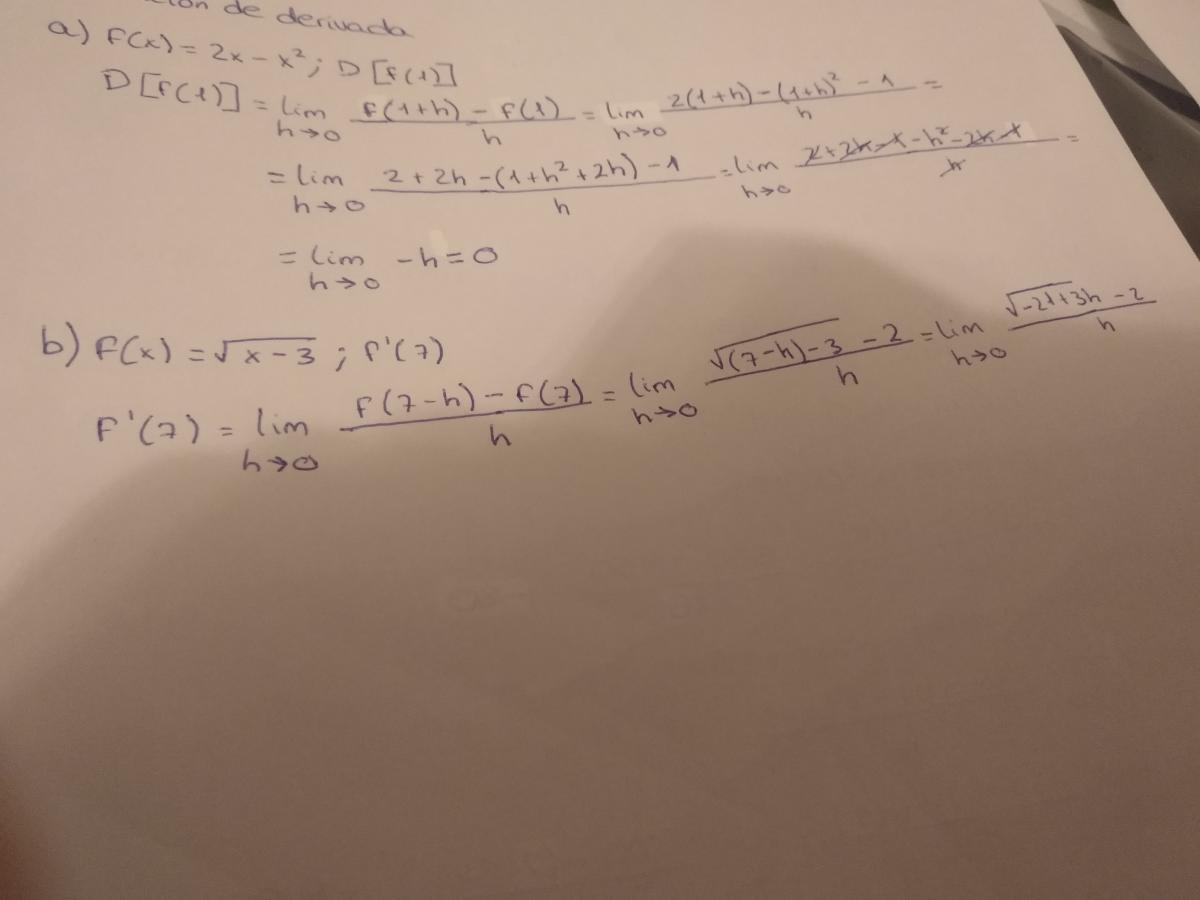 de derivada
a) f(x) = 2x - x²; D[f(1)]
D[f(1)] = lim h→0 f(1+h) - f(1) / h = lim h→0 2(1+h) - (1+h)² - 1 / h =
= lim h→0 2 + 2h - (1+h²+2h) - 1 / h = lim h→0 2+2h-1-h²-2h-1 / h =
= lim h→0 -h = 0
b) f(x) = √x-3 ; f'(7)
f'(7) = lim h→0 f(7-h) - f(7) / h = lim h→0 √(7-h)-3 - 2 / h = lim h→0 √-21+3h - 2 / h